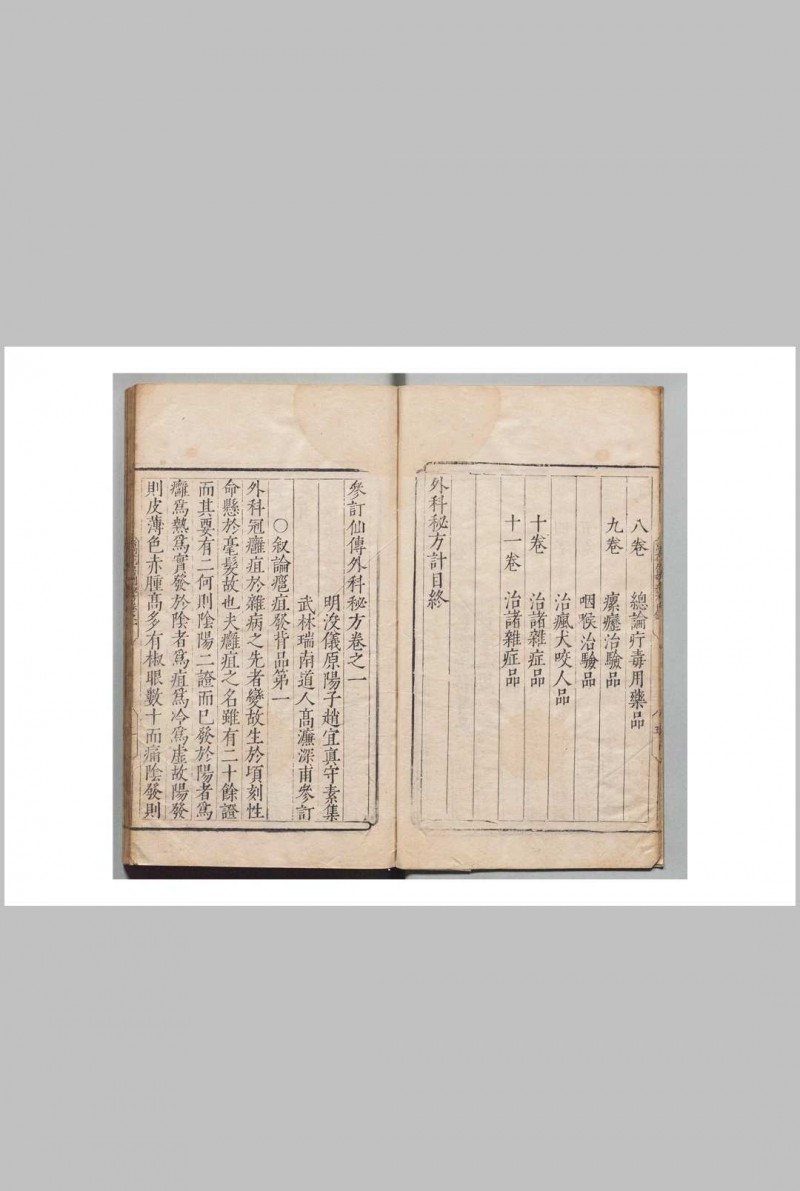 八卷　總論疔毒用藥品
九卷　瘰癧治驗品
咽喉治驗品
治瘋犬咬人品
十卷　治諸雜症品
十一卷　治諸雜症品
外科秘方計目終
參訂仙傳外科秘方卷之一
明浚儀原陽子趙宜真守素集
武林瑞南道人髙濂深甫參訂
○叙論癰疽發背品第一
外科冠癰疽於雜病之先者變故生於頃刻性
命懸於毫髮故也夫癰疽之名雖有二十餘證
而其要有二何則陰陽二證而已發於陽者爲
癰爲熱爲實發於陰者爲疽爲冷爲虛故陽發
則皮薄色赤腫髙多有椒眼數十而痛陰發則